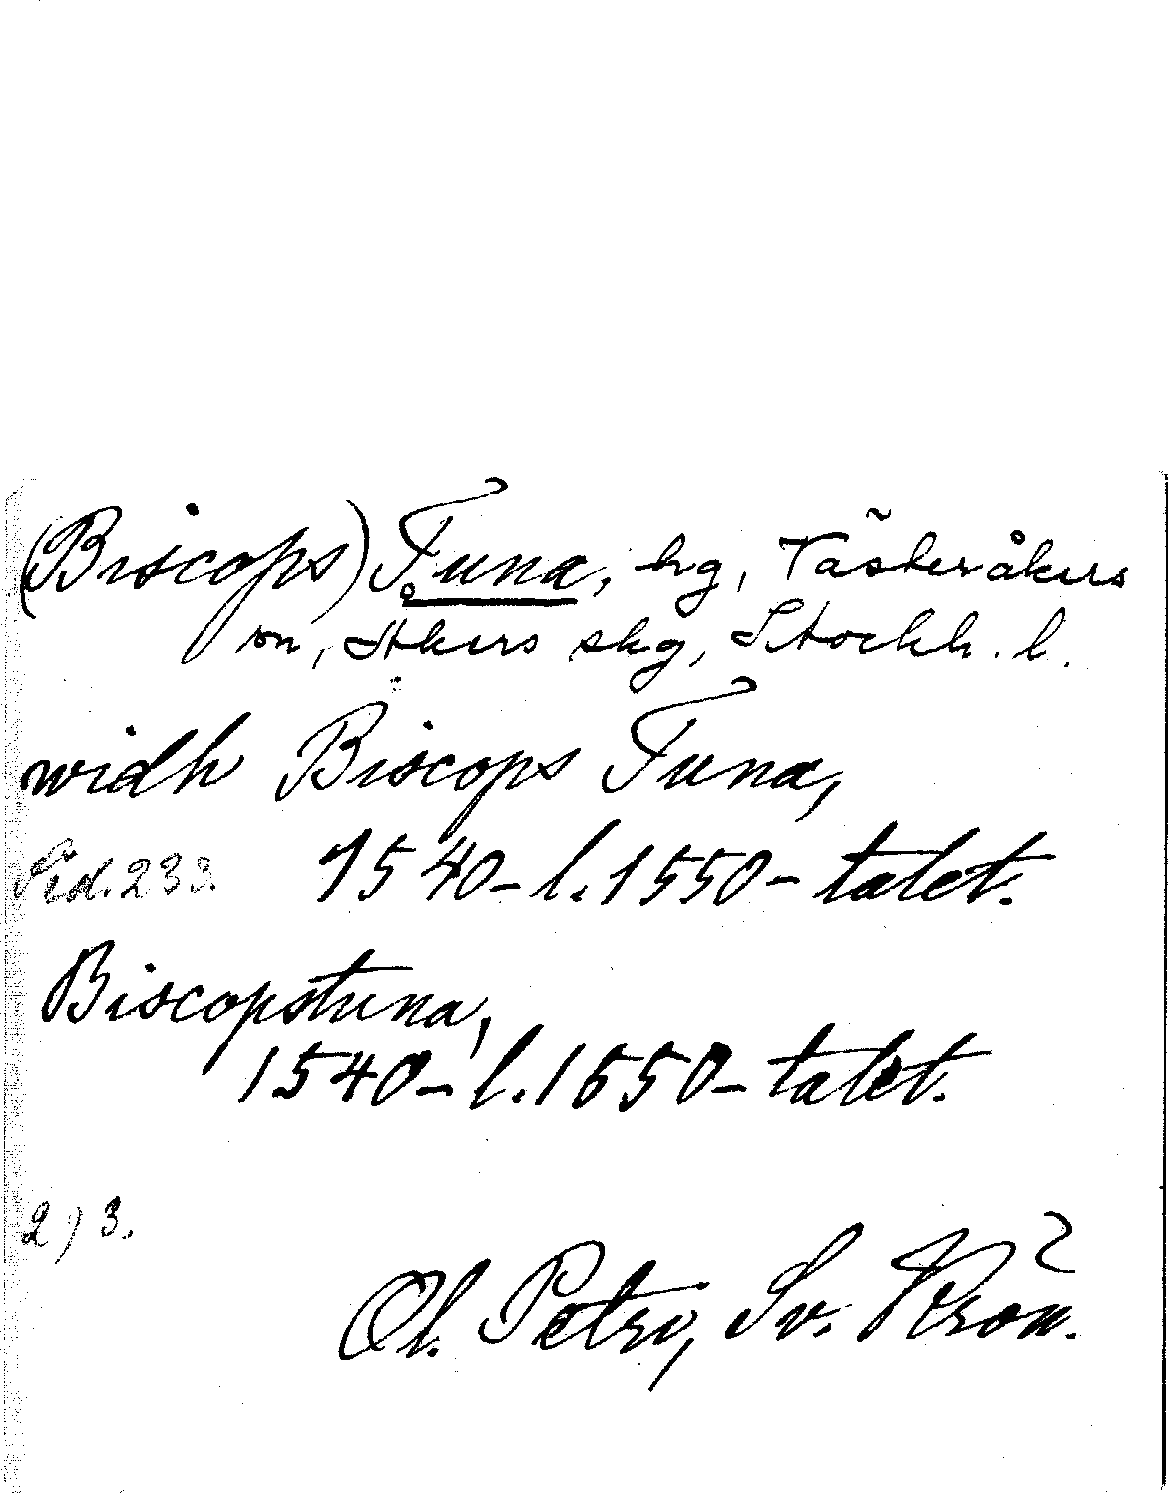 (Biscops) Tuna, hg, Västeråkers
sn, Åkers skg, Stockh. l.
widh Biscops Tuna,
Sid. 233. 1540- l. 1550-talet.
Biscopstuna,
1540- l. 1550-talet.
2) 3.
Ol. Petri, Sv. Krön.